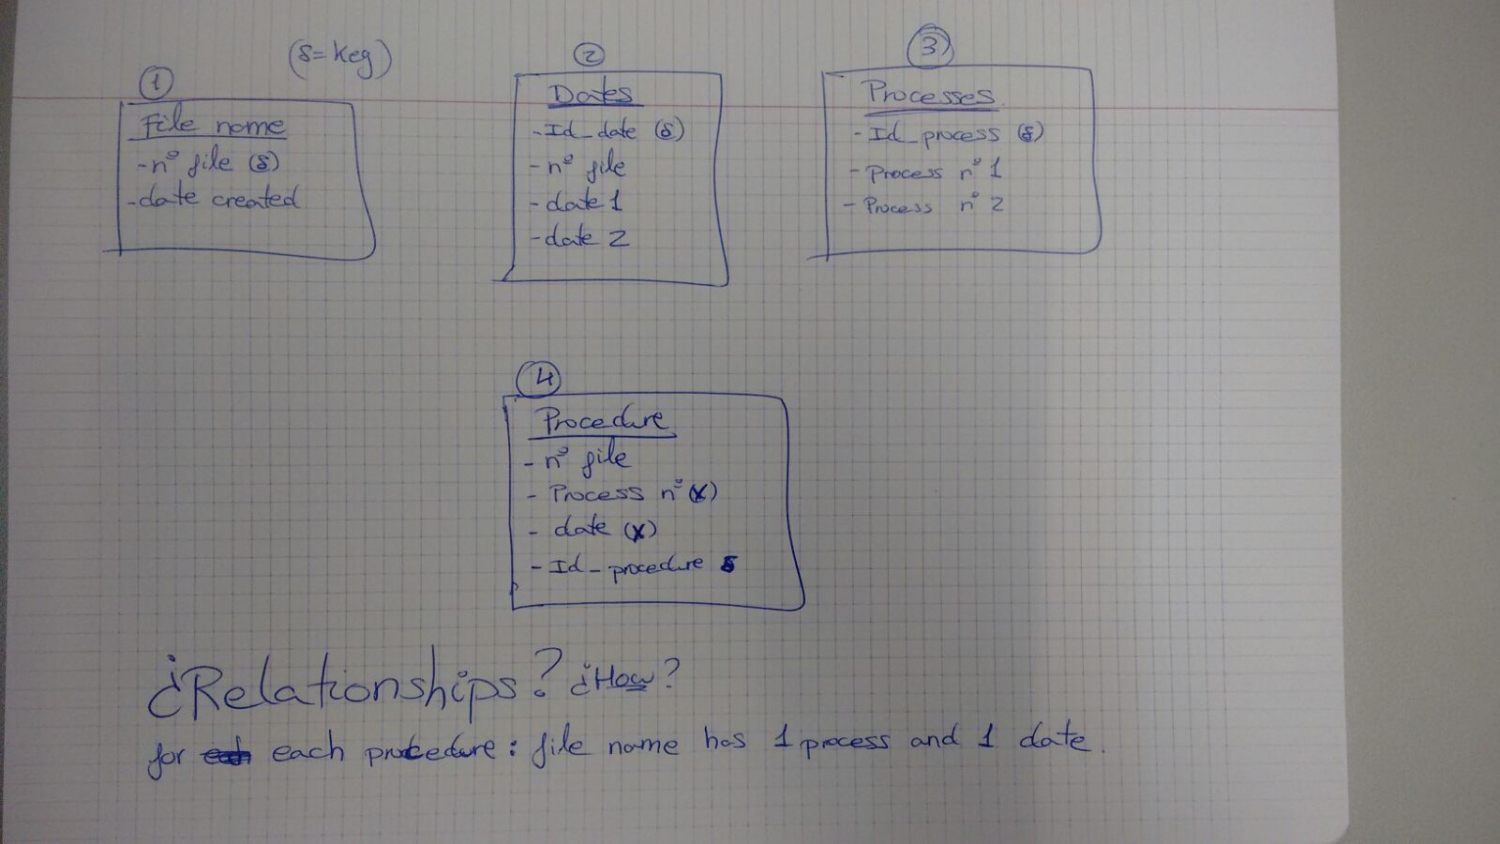 (δ=key)
①
File name
-nº file (δ)
-date created
②
Dates
-Id_date (δ)
-nº file
-date 1
-date 2
③
Processes
-Id_process (δ)
-Process nº 1
-Process nº 2
④
Procedure
-nº file
-Process nº (x)
-date (x)
-Id_procedure δ
¿Relationships? ¿How?
for each procedure: file name has 1 process and 1 date.